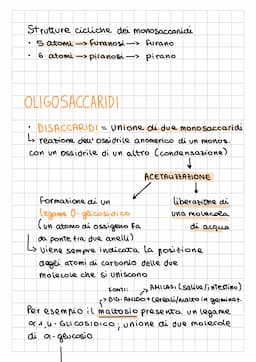 Strutture cicliche dei monosaccaridi
• 5 atomi → Furanosi → Furano
• 6 atomi → piranosi → pirano
OLIGOSACCARIDI
• DISACCARIDI = unione di due monosaccaridi
↳ reazione dell'ossidrile anomerico di un monos.
con un ossidrile di un altro (condensazione)
ACETALIZZAZIONE
Formazione di un
legame O-glicosidico
(un atomo di ossigeno fa
da ponte tra due anelli)
liberazione di
una molecola
di acqua
↳ viene sempre indicata la posizione
degli atomi di carbonio delle due
molecole che si uniscono
FONTI: AMILASI (saliva/intestino)
cereali/malto in germinaz.
Per esempio il maltosio presenta un legame
α 1,4 - GLICOSIDICO; unione di due molecole
di α-glucosio